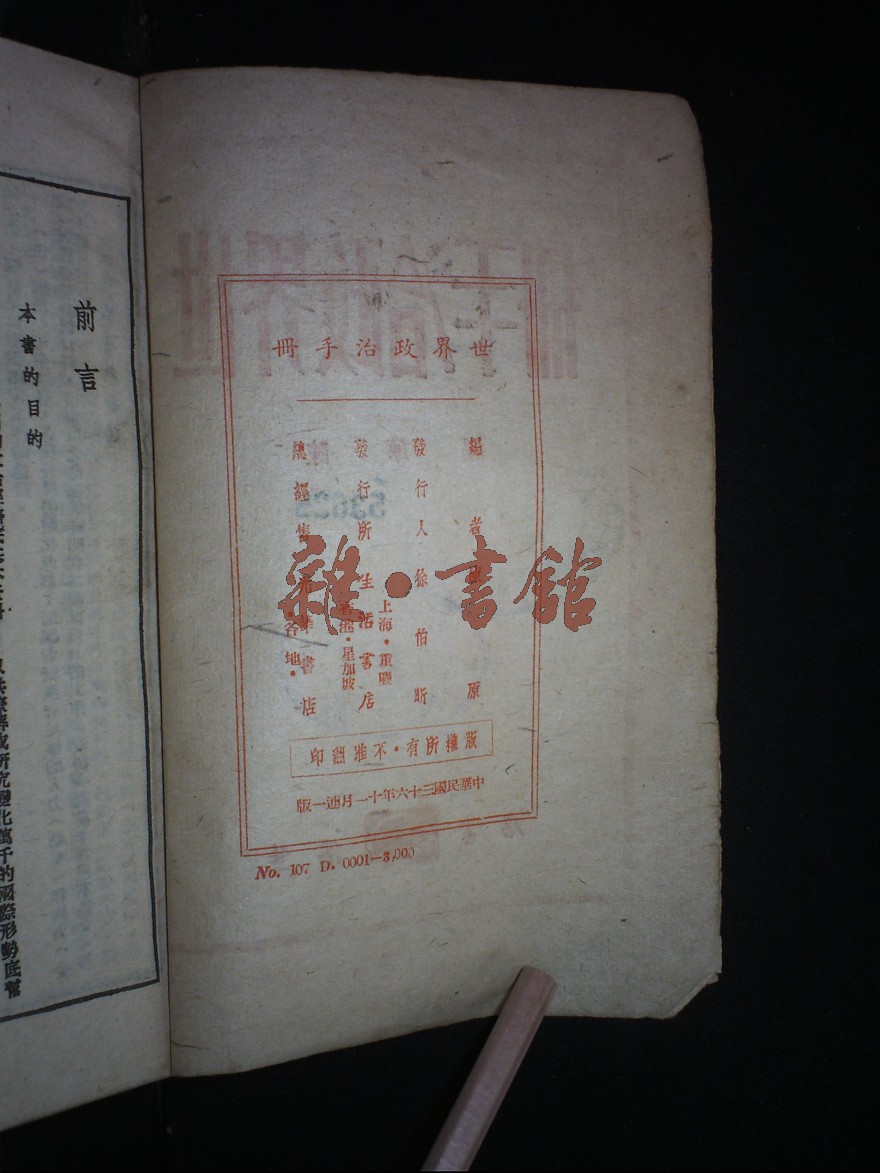 世界政治手冊
編者 原
發行人 徐伯昕
發行所 生活書店
上海・重慶
星加坡
總經售 華書店
・各地・
版權所有・不准翻印
中華民國三十六年十一月連一版
No. 107 D. 0001—3,000
前言
本書的目的
研究變化萬千的國際形勢底幫
雜・書館